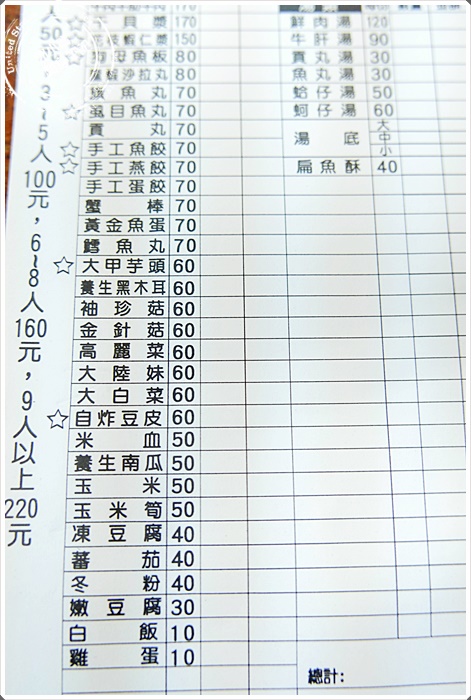 人50元，3~5人100元，6~8人160元，9人以上220元
170
干貝漿 170
花枝蝦仁漿 150
魚板 80
沙拉丸 80
魚丸 70
虱目魚丸 70
貢丸 70
手工魚餃 70
手工燕餃 70
手工蛋餃 70
蟹棒 70
黃金魚蛋 70
鱈魚丸 70
大甲芋頭 60
養生黑木耳 60
袖珍菇 60
金針菇 60
高麗菜 60
大陸妹 60
大白菜 60
自炸豆皮 60
米血 50
養生南瓜 50
玉米 50
玉米筍 50
凍豆腐 40
蕃茄 40
冬粉 40
嫩豆腐 30
白飯 10
雞蛋 10
鮮肉湯 120
牛肝湯 90
貢丸湯 30
魚丸湯 30
蛤仔湯 50
蚵仔湯 60
湯底 大 中 小
扁魚酥 40
總計: